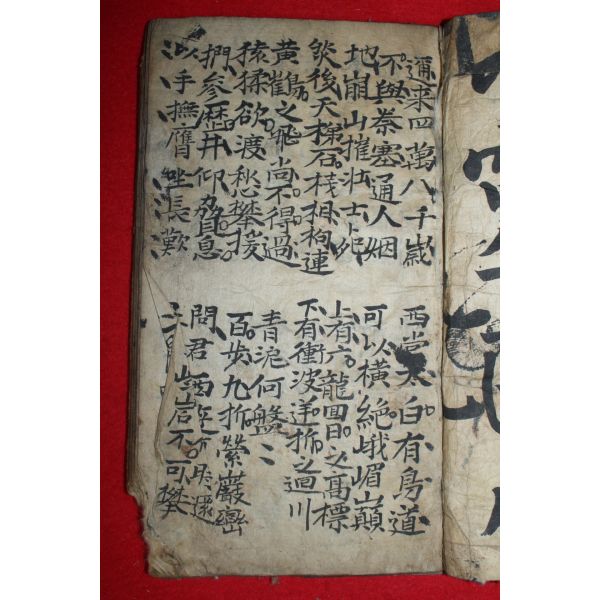 邇来四萬八千歲
不與秦塞通人烟
西當太白有鳥道
可以横絶峨嵋山巔
地崩山摧壮士死
然後天梯石棧相拘連
上有六龍回日之高標
下有衝波逆折之廻川
黄鶴之飛尚不得過
猿猱欲渡愁攀援
青泥何盤〻
百步九折縈巖巒
捫参歷井仰脅息
以手撫膺坐長歎
問君西還
岩不可攀